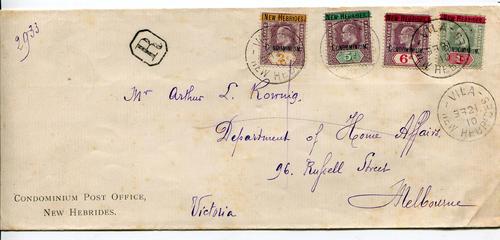 2933
R
NEW HEBRIDES.
CONDOMINIUM.
2d
NEW HEBRIDES.
CONDOMINIUM.
5d
NEW HEBRIDES.
CONDOMINIUM.
6d
CONDOMINIUM.
1/-
VILA
NEW HEBRIDES
VILA
10
NEW HEBRIDES
Mr Arthur L. Kownig,
Department of Home Affairs,
96. Russell Street
Melbourne
Victoria
CONDOMINIUM POST OFFICE,
NEW HEBRIDES.